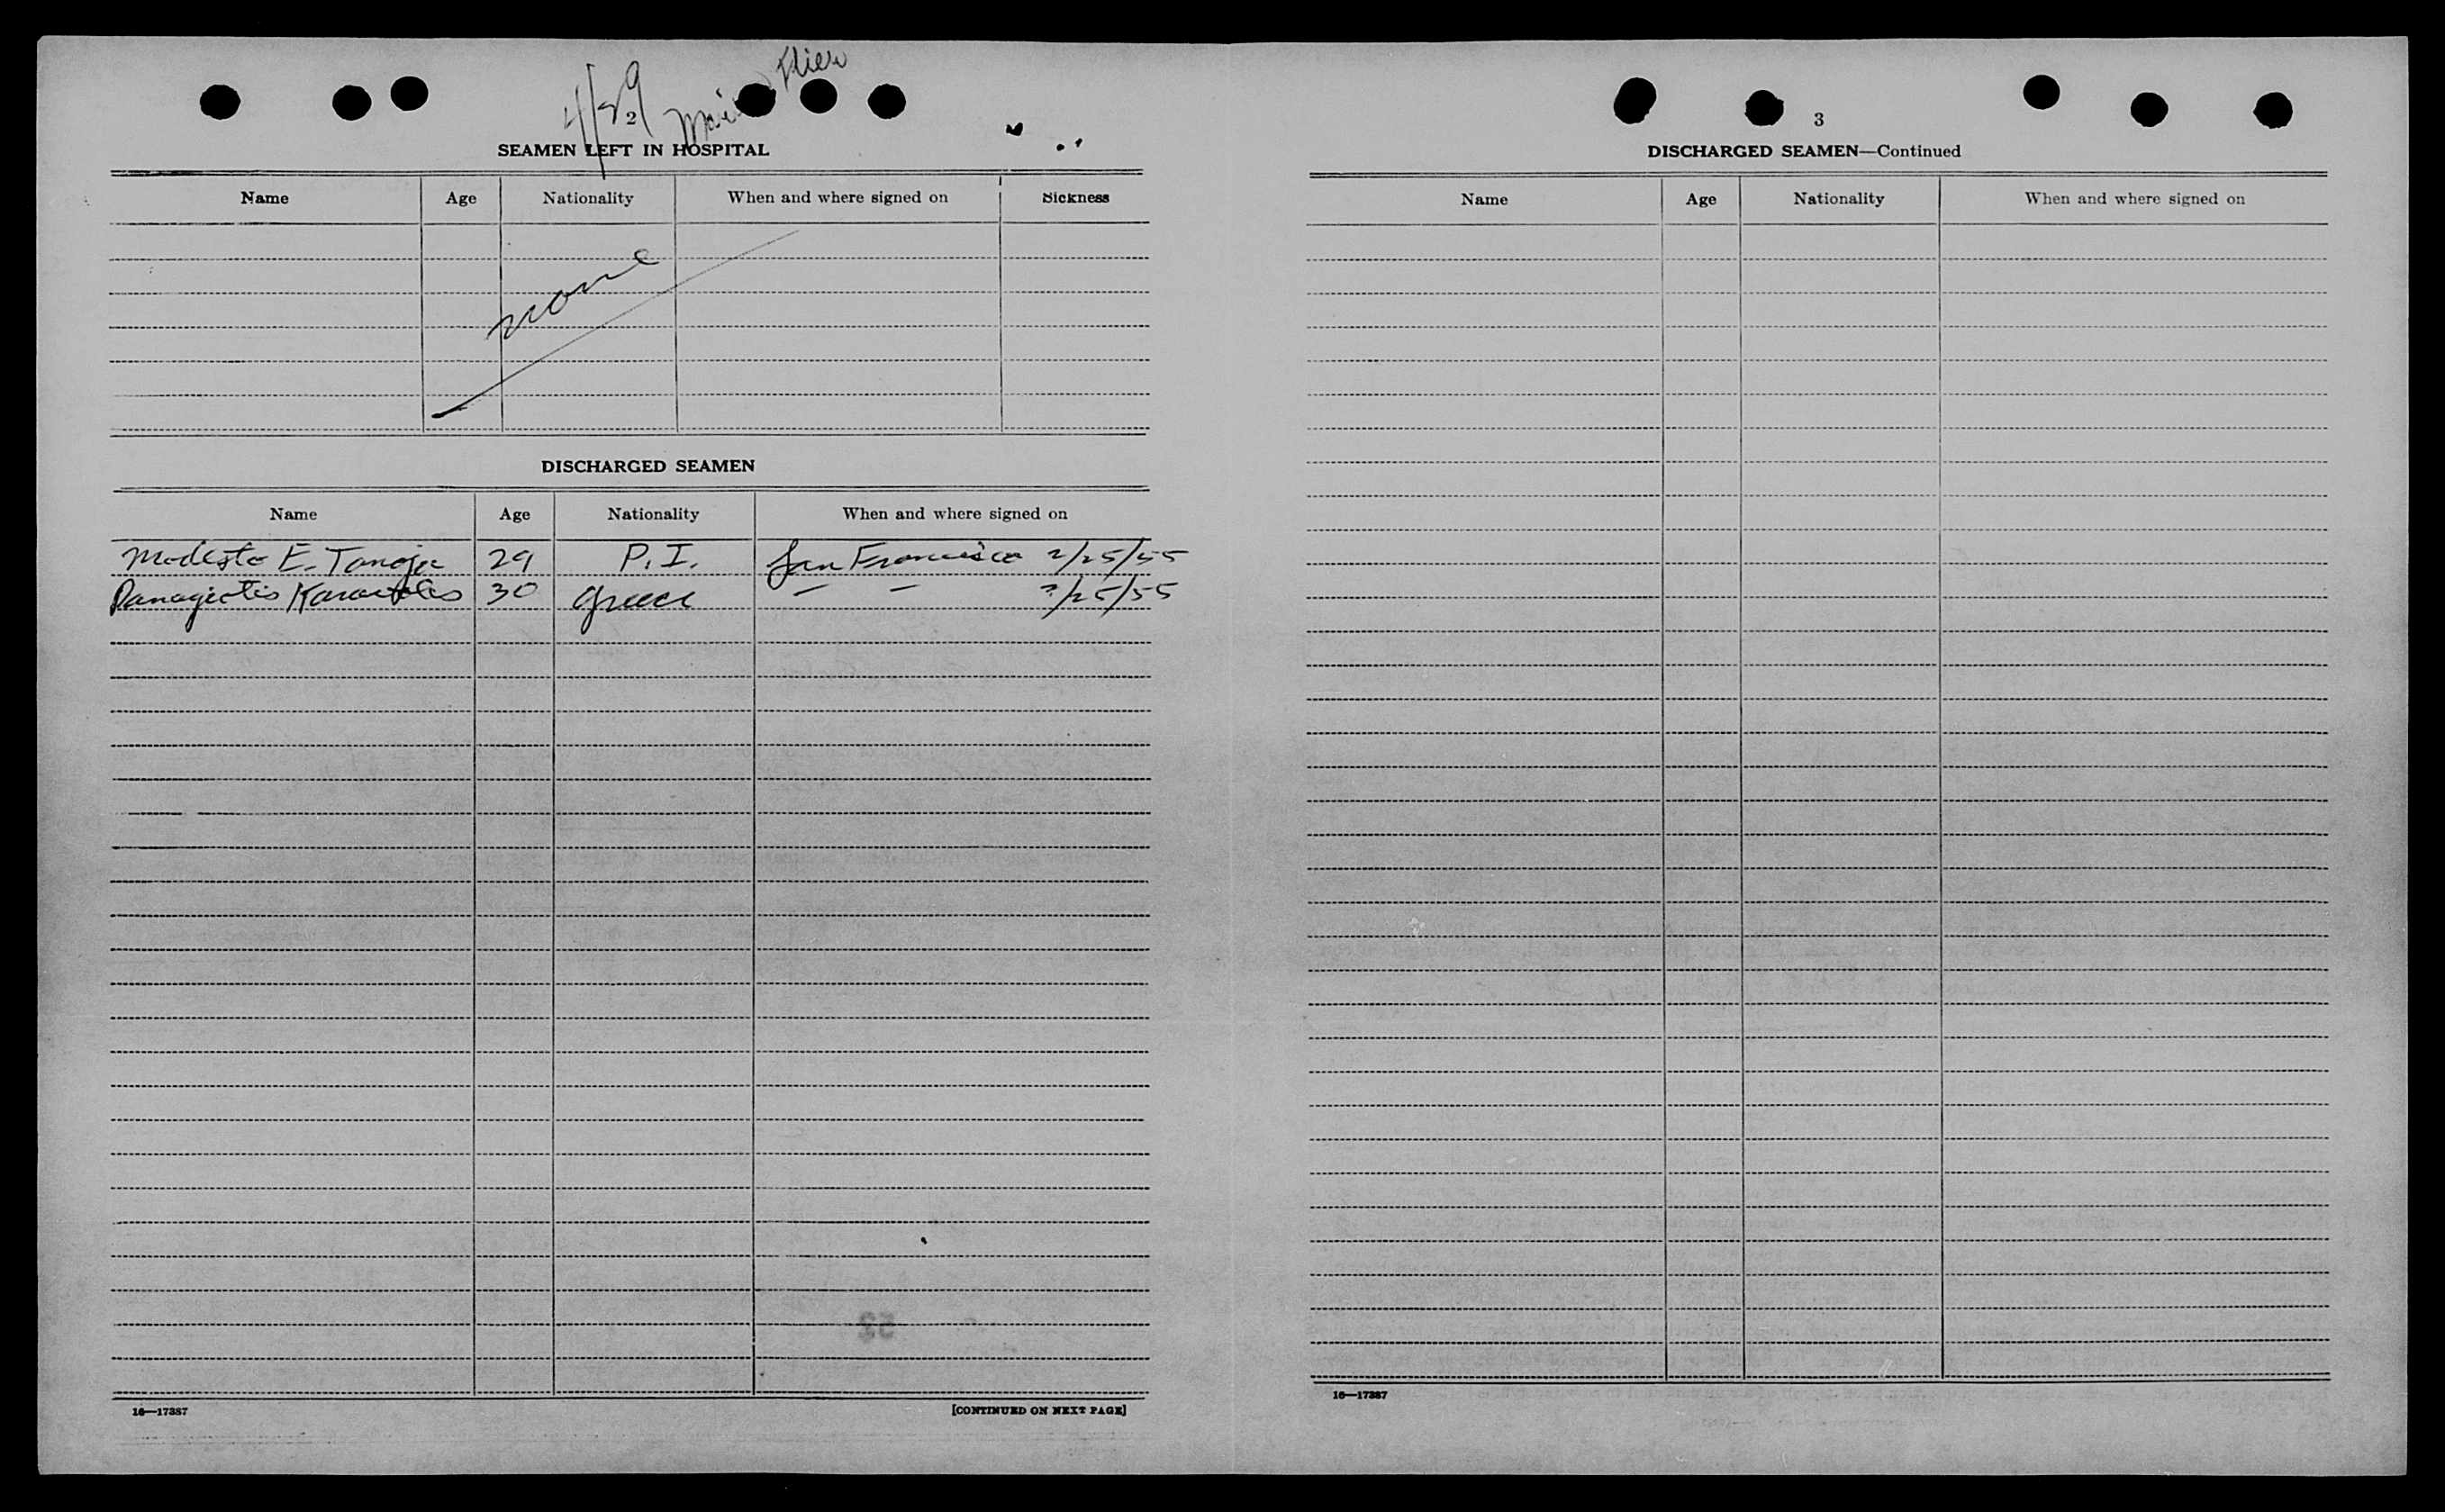 4/29
2
SEAMEN LEFT IN HOSPITAL
Name Age Nationality When and where signed on Sickness
none
DISCHARGED SEAMEN
Name Age Nationality When and where signed on
Modesto E. Tanoja 29 P.I. San Francisco 2/25/55
Panagiotis 30 Greece — — 2/25/55
16—17387 [CONTINUED ON NEXT PAGE]
3
DISCHARGED SEAMEN—Continued
Name Age Nationality When and where signed on
16—17387